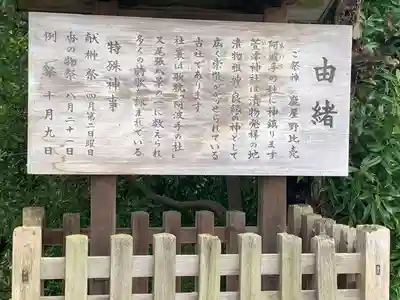 由緒
ご祭神 鹿屋野比売
阿波手の杜に神鎮ります
萱津神社は漬物発祥の地
漬物祖神・良縁の神として
広く崇敬が寄せられている
古社であります
社叢は歌枕「阿波手の杜」
又尾張八叢の一に数えられ
多くの詩歌に詠まれている
特殊神事
献榊祭 四月第二日曜日
香の物祭 八月二十一日
例祭 十月九日